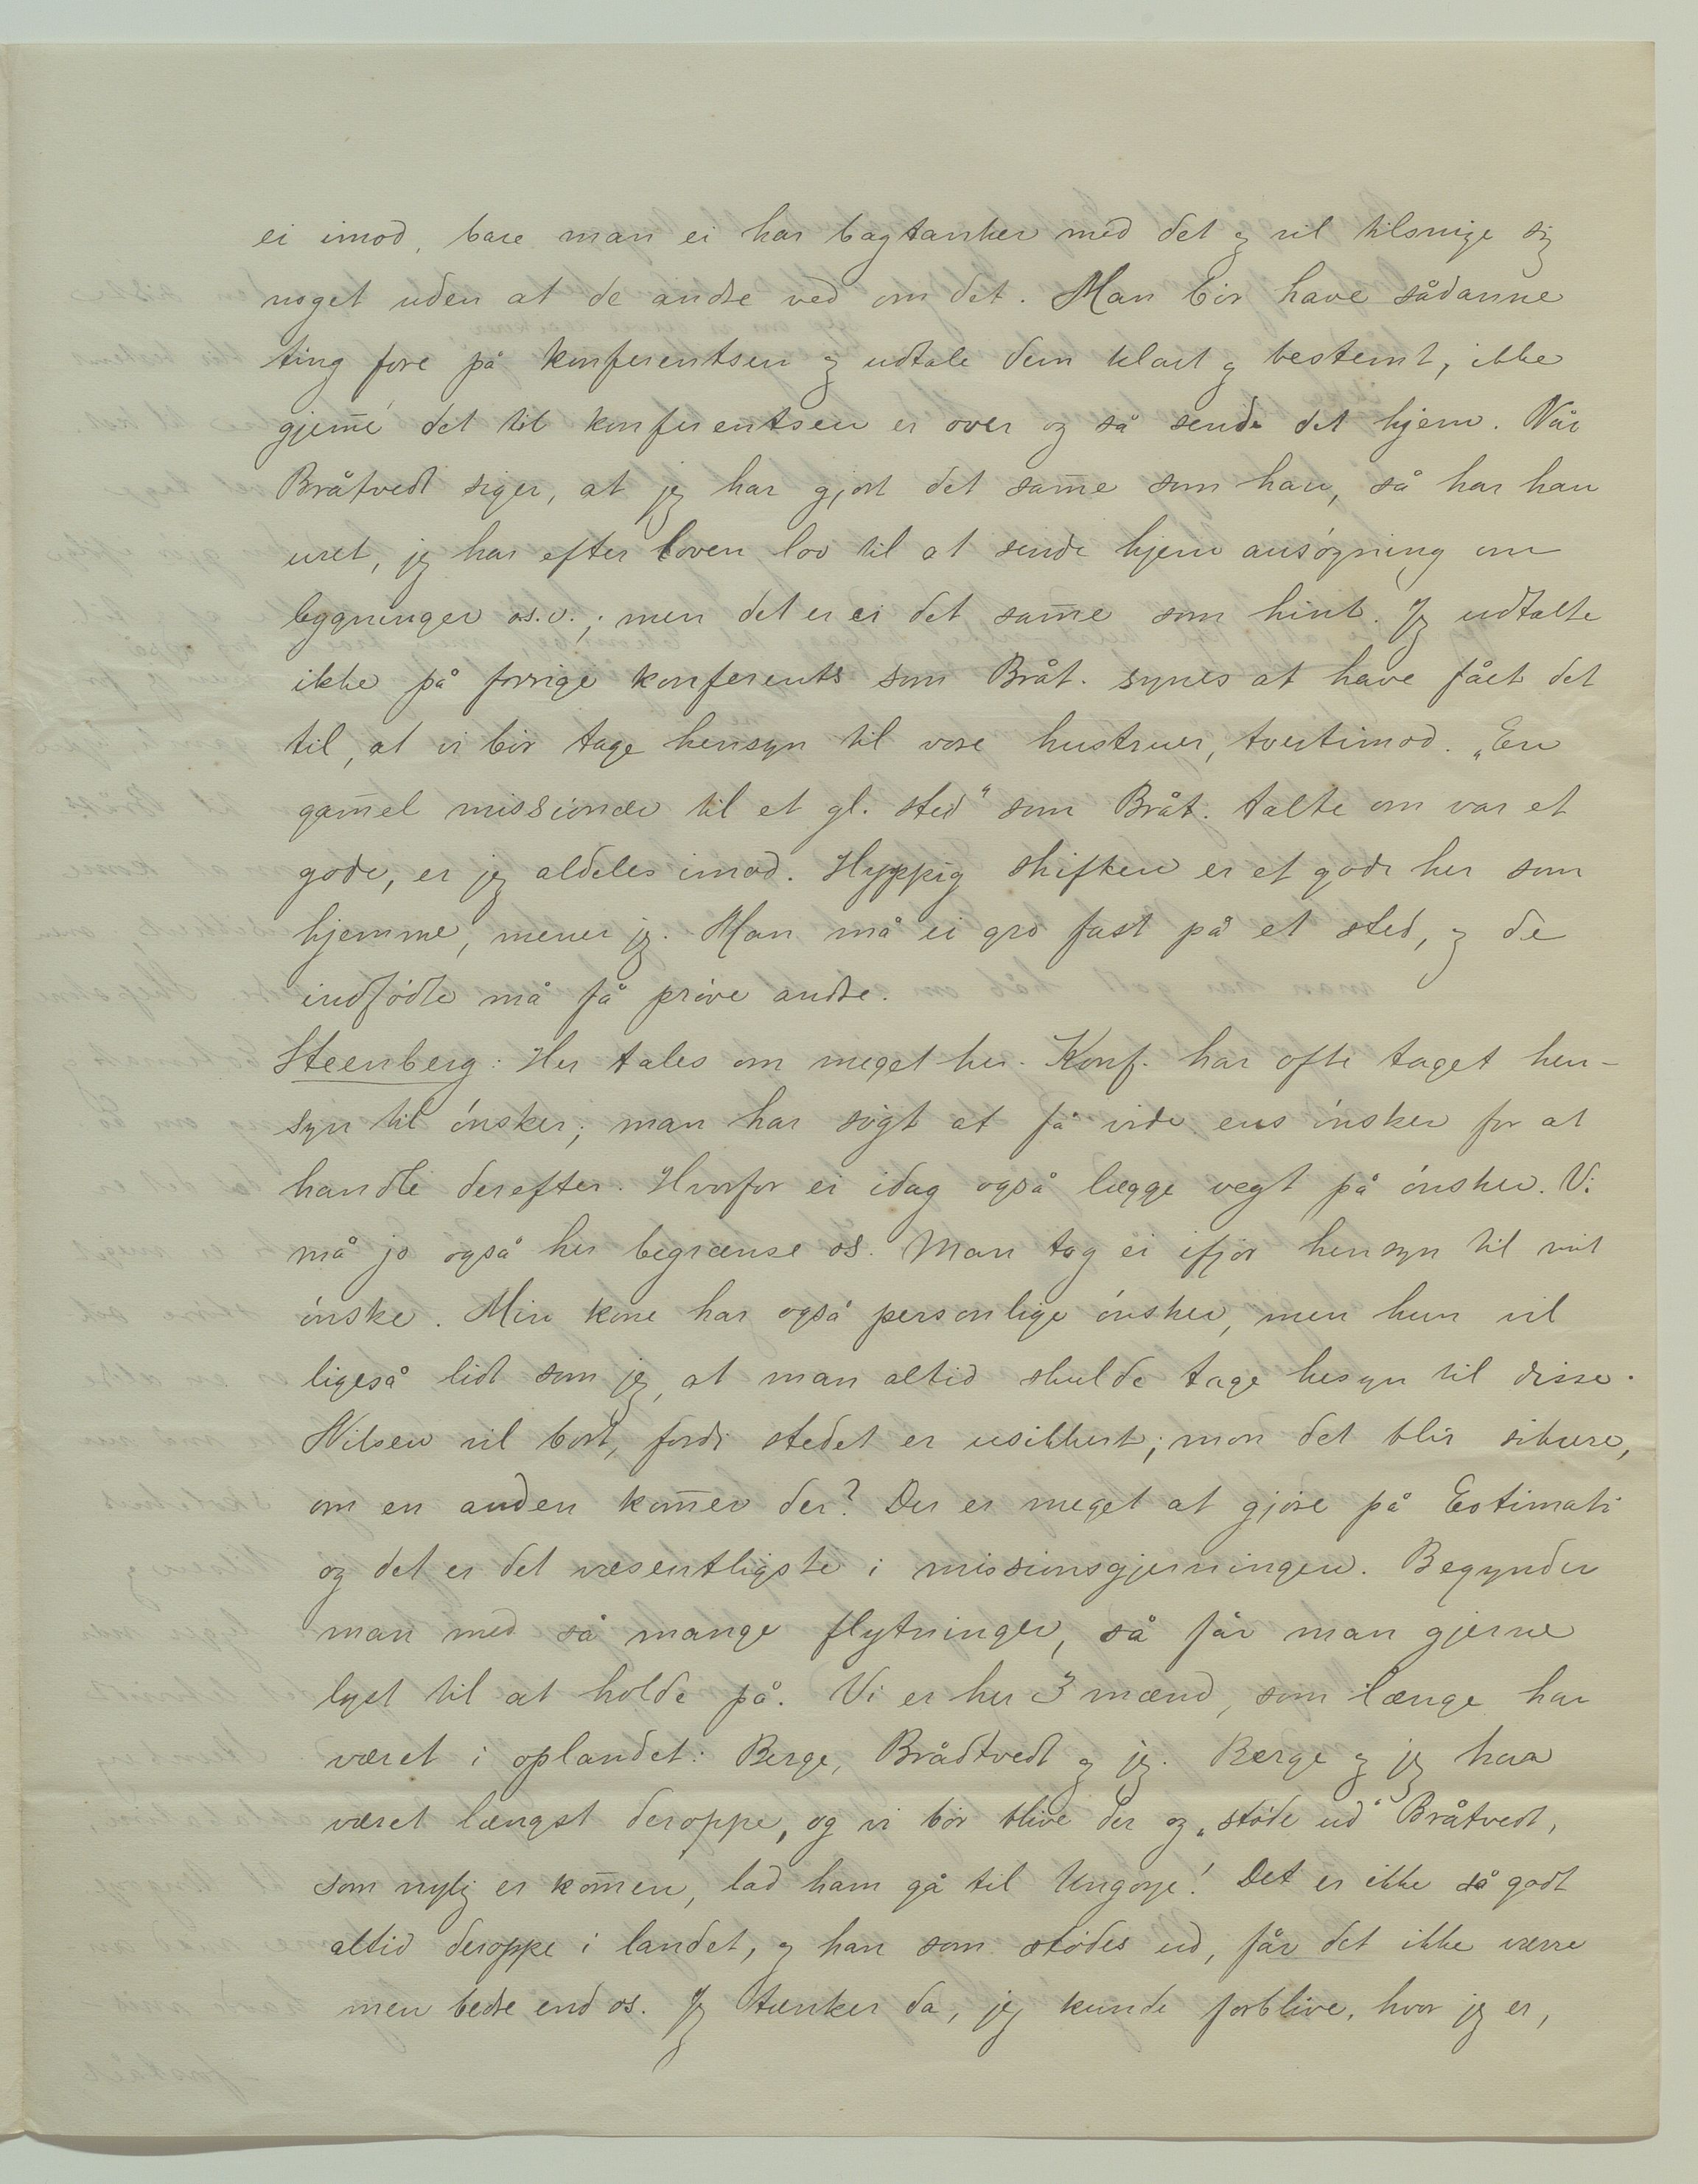 ei imod, bare man ei har bagtanker med det og vil tilsnige sig
noget uden at de andre ved om det. Man bør have sådanne
ting fore på konferentsen og udtale dem klart og bestemt, ikke
gjem̄e det til konferentsen er over og så sende det hjem. Når
Bråtvedt siger, at jeg har gjort det sam̄e som han, så har han
uret, jeg har efter loven lov til at sende hjem ansøgning om
bygninger os.v.; men det er ei det sam̄e som hint. Jeg udtalte
ikke på forrige konferents som Bråt. synes at have fået det
til, at vi bør tage hensyn til vore hustruer, tvertimod. „En
gam̄el missionær til et gl. sted" som Bråt. talte om var et
gode, er jeg aldeles imod. Hyppig skiften er et gode her som
hjemme, mener jeg. Man må ei gro fast på et sted, og de
indfødte må få prøve andre.
Steenberg: Her tales om meget her. Konf. har ofte taget hen-
syn til ønsker; man har søgt at få vide ens ønsker for at
handle derefter. Hvorfor ei idag også lægge vegt på ønsker. Vi
må jo også her begrænse os. Man tog ei ifjor hensyn til mit
ønske. Min kone har også personlige ønsker, men hun vil
ligeså lidt som jeg, at man altid skulde tage hesyn til disse.
Nilsen vil bort, fordi stedet er usikkert; mon det blir sikrere,
om en anden kom̄er der? Der er meget at gjøre på Eotimati
og det er det væsentligste i missionsgjerningen. Begynder
man med så mange flytninger, så får man gjerne
lyst til at holde på. Vi er her 3 mænd, som længe har
været i oplandet: Berge, Brådtvedt og jeg. Berge og jeg har
været længst deroppe, og vi bør blive der og „støde ud" Bråtvedt,
som nylig er kom̄en, lad ham gå til Ungoye! Det er ikke så godt
altid deroppe i landet, og han som stødes ud, får det ikke værre
men bedre end os. Jeg tænker da, jeg kunde forblive, hvor jeg er,